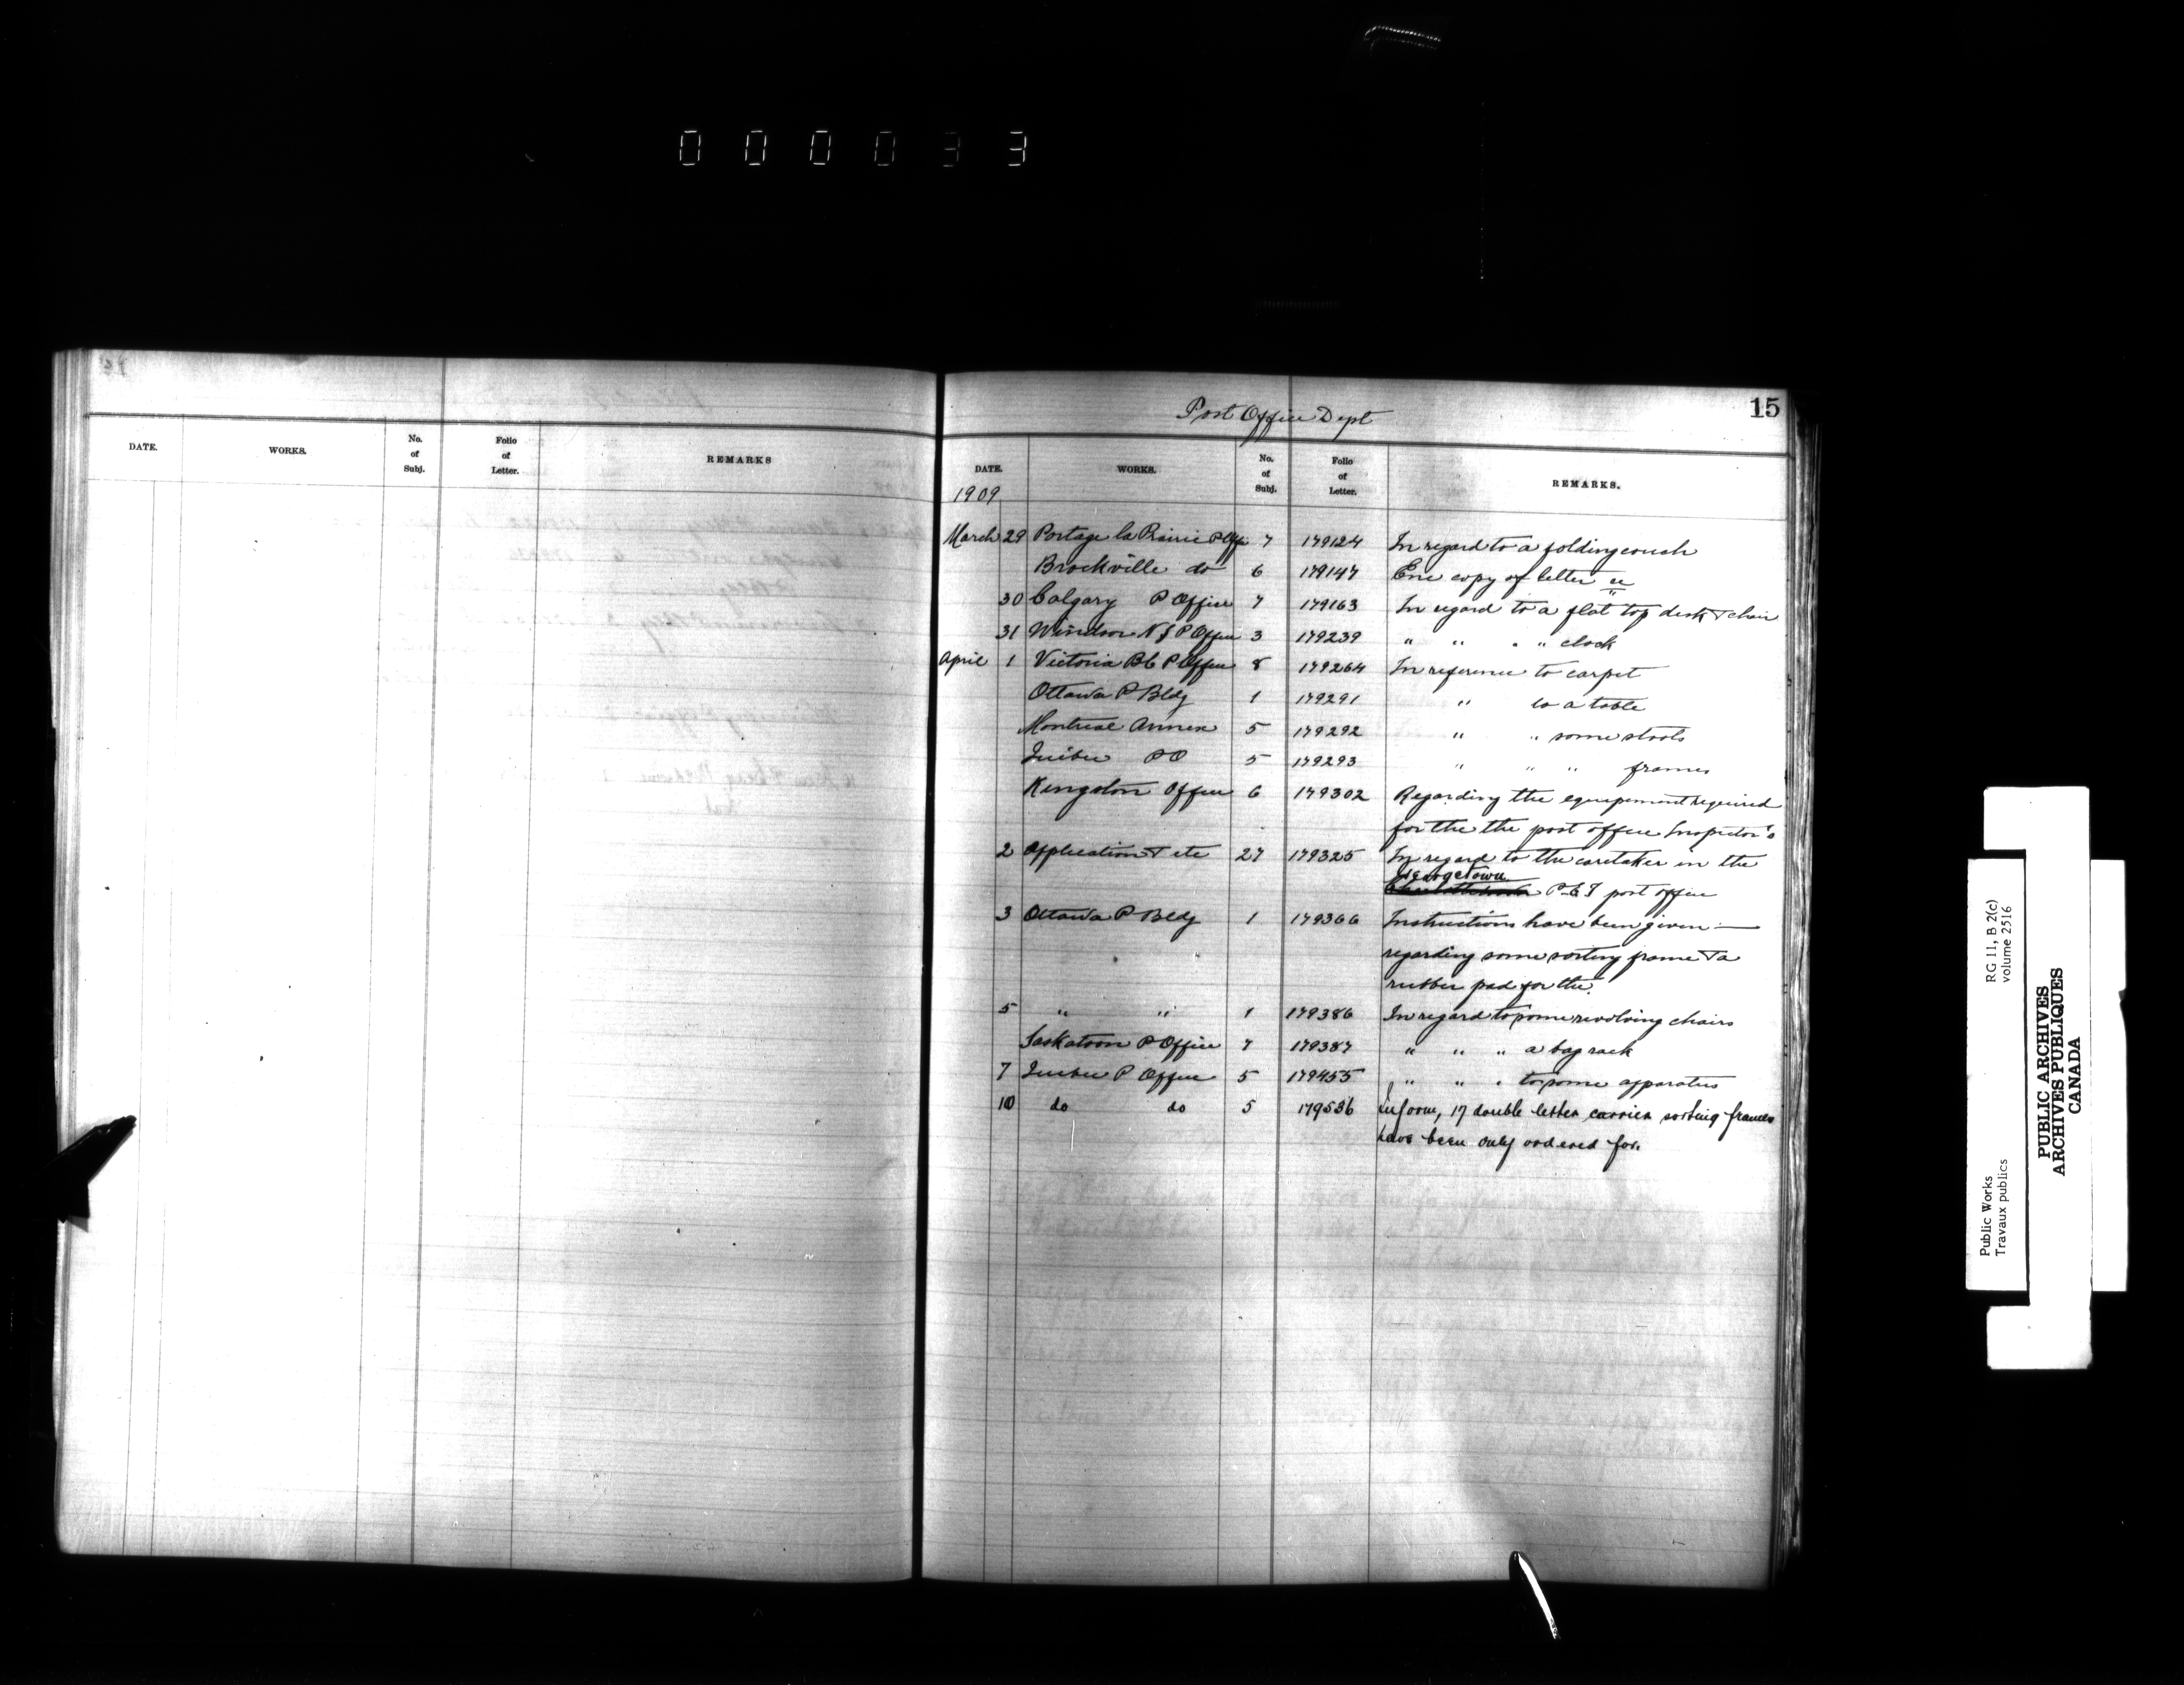 000033
DATE. WORKS. No. of Subj. Folio of Letter. REMARKS
15
Post Office Dept
DATE. WORKS. No. of Subj. Folio of Letter. REMARKS.
1909
March 29 Portage la Prairie P Off 7 179124 In regard to a folding couch
Brockville do 6 179147 Enc copy of letter
30 Calgary P Office 7 179163 In regard to a flat top desk & chair
31 Windsor N S P Office 3 179239 " " " " clock
April 1 Victoria B C P Office 8 179264 In reference to carpet
Ottawa P Bldg 1 179291 " to a table
Montreal Annex 5 179292 " " some stools
Quebec P O 5 179293 " " " frames
Kingston Office 6 179302 Regarding the equipement required
for the the post office Inspector's
2 Application & etc 27 179325 In regard to the caretaker in the
Georgetown P E I post office
3 Ottawa P Bldg 1 179366 Instructions have been given —
regarding some sorting frame & a
rubber pad for the
5 " " 1 179386 In regard to some revolving chairs
Saskatoon P Office 7 179387 " " " a bag rack
7 Quebec P Office 5 179455 " " " to some apparatus
10 do do 5 179536 Inform, 17 double letter carrier sorting frames
have been only ordered for.
Public Works RG 11, B 2(c)
Travaux publics volume 2516
PUBLIC ARCHIVES
ARCHIVES PUBLIQUES
CANADA